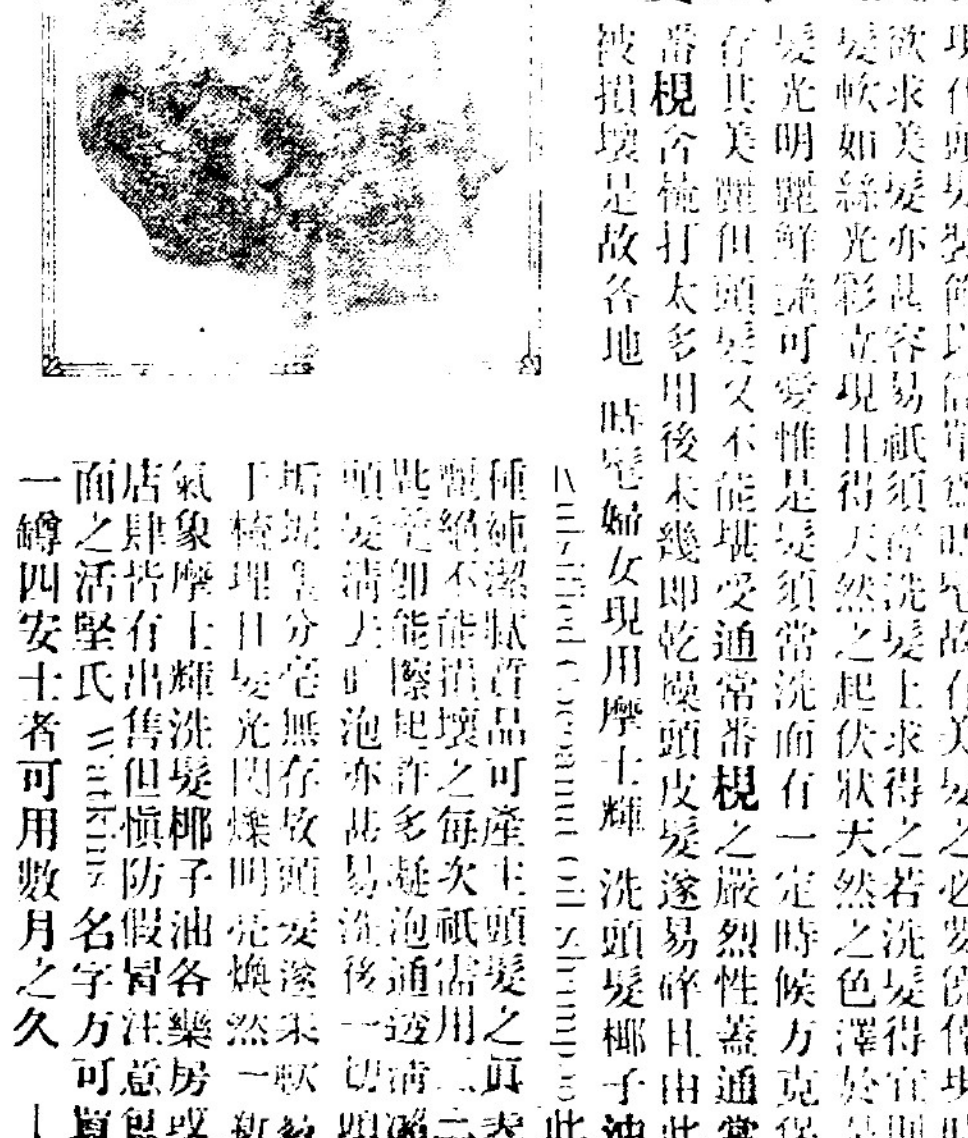 現代頭髮裝飾以簡單為時髦故在美髮之必要
欲求美髮亦甚容易祇須洗髮上求得之若洗髮得宜則
髮軟如絲光彩立現且得天然之起伏狀天然之色澤於是
髮光明麗鮮艷可愛惟是髮須常洗而有一定時候方克保
存其美麗但頭髮又不能堪受通常番梘之嚴烈性蓋通常
番梘含梳打太多用後未幾即乾燥頭皮髮遂易碎且由此
被損壞是故各地 時髦婦女現用摩士輝 洗頭髮椰子油
Mulsified Cocoanut Oil Shampoo 此
種純潔膩質品可產生頭髮之眞表
絕不能損壞之每次祇需用二三
匙羹即能擦起許多凝泡通透淸
頭髮淸去此泡亦甚易洗後一切頭
垢坭塵分毫無存故頭髮遂柔軟
于梳理且髮光閃爍明亮煥然一新
氣象摩士輝洗髮椰子油各藥房或
店肆皆有出售但愼防假冒注意
面之活堅氏 Watkins 名字方可買
一罇四安士者可用數月之久